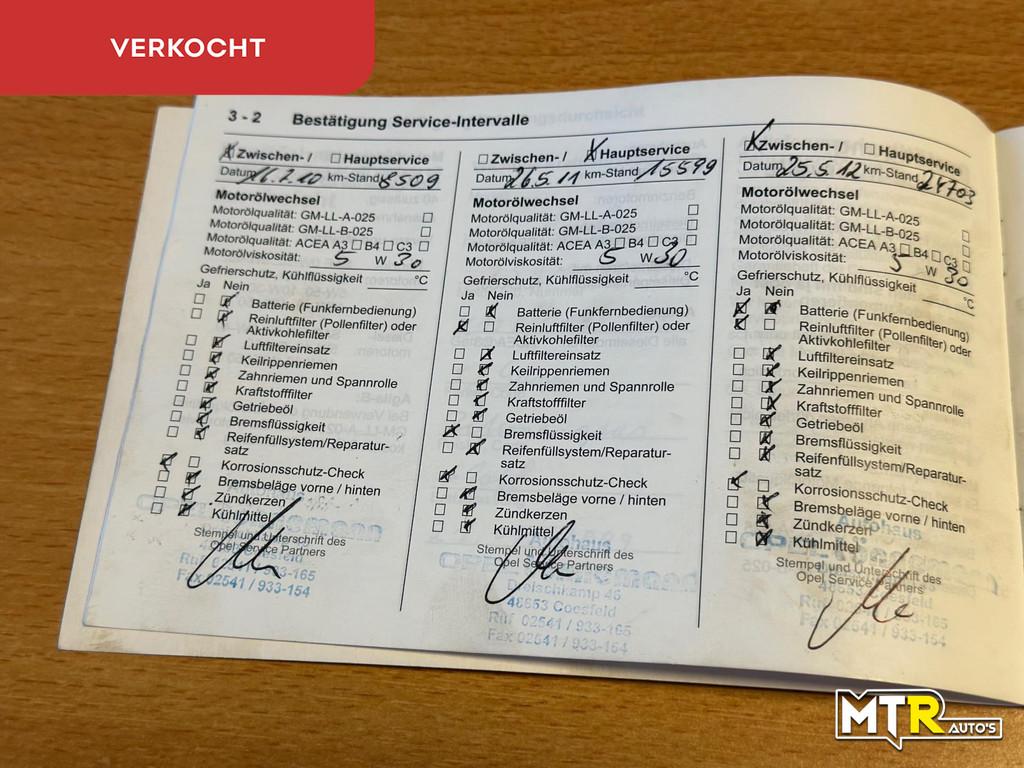 VERKOCHT
3 - 2 Bestätigung Service-Intervalle
Zwischen- / Hauptservice
Datum 16.7.10 km-Stand 8509
Motorölwechsel
Motorölqualität: GM-LL-A-025
Motorölqualität: GM-LL-B-025
Motorölqualität: ACEA A3 B4 C3
Motorölviskosität: 5 W 30
Gefrierschutz, Kühlflüssigkeit °C
Ja Nein
Batterie (Funkfernbedienung)
Reinluftfilter (Pollenfilter) oder
Aktivkohlefilter
Luftfiltereinsatz
Keilrippenriemen
Zahnriemen und Spannrolle
Kraftstofffilter
Getriebeöl
Bremsflüssigkeit
Reifenfüllsystem/Reparatur-
satz
Korrosionsschutz-Check
Bremsbeläge vorne / hinten
Zündkerzen
Kühlmittel
Stempel und Unterschrift des
Opel Service Partners
02541 / 933-154
Zwischen- / Hauptservice
Datum 26.5.11 km-Stand 15599
Motorölwechsel
Motorölqualität: GM-LL-A-025
Motorölqualität: GM-LL-B-025
Motorölqualität: ACEA A3 B4 C3
Motorölviskosität: 5 W 30
Gefrierschutz, Kühlflüssigkeit °C
Ja Nein
Batterie (Funkfernbedienung)
Reinluftfilter (Pollenfilter) oder
Aktivkohlefilter
Luftfiltereinsatz
Keilrippenriemen
Zahnriemen und Spannrolle
Kraftstofffilter
Getriebeöl
Bremsflüssigkeit
Reifenfüllsystem/Reparatur-
satz
Korrosionsschutz-Check
Bremsbeläge vorne / hinten
Zündkerzen
Kühlmittel
Stempel und Unterschrift des
Opel Service Partners
Autohaus
Dreischkamp 46
48653 Coesfeld
Ruf 02541 / 933-165
Fax 02541 / 933-154
Zwischen- / Hauptservice
Datum 25.5.12 km-Stand 24703
Motorölwechsel
Motorölqualität: GM-LL-A-025
Motorölqualität: GM-LL-B-025
Motorölqualität: ACEA A3 B4 C3
Motorölviskosität: 5 W 30
Gefrierschutz, Kühlflüssigkeit °C
Ja Nein
Batterie (Funkfernbedienung)
Reinluftfilter (Pollenfilter) oder
Aktivkohlefilter
Luftfiltereinsatz
Keilrippenriemen
Zahnriemen und Spannrolle
Kraftstofffilter
Getriebeöl
Bremsflüssigkeit
Reifenfüllsystem/Reparatur-
satz
Korrosionsschutz-Check
Bremsbeläge vorne / hinten
Zündkerzen
Kühlmittel
Autohaus
Stempel und Unterschrift des
Opel Service Partners
48653 Coesfeld
Ruf 02541 / 933-165
Fax 02541 / 933-154
MTR AUTO'S